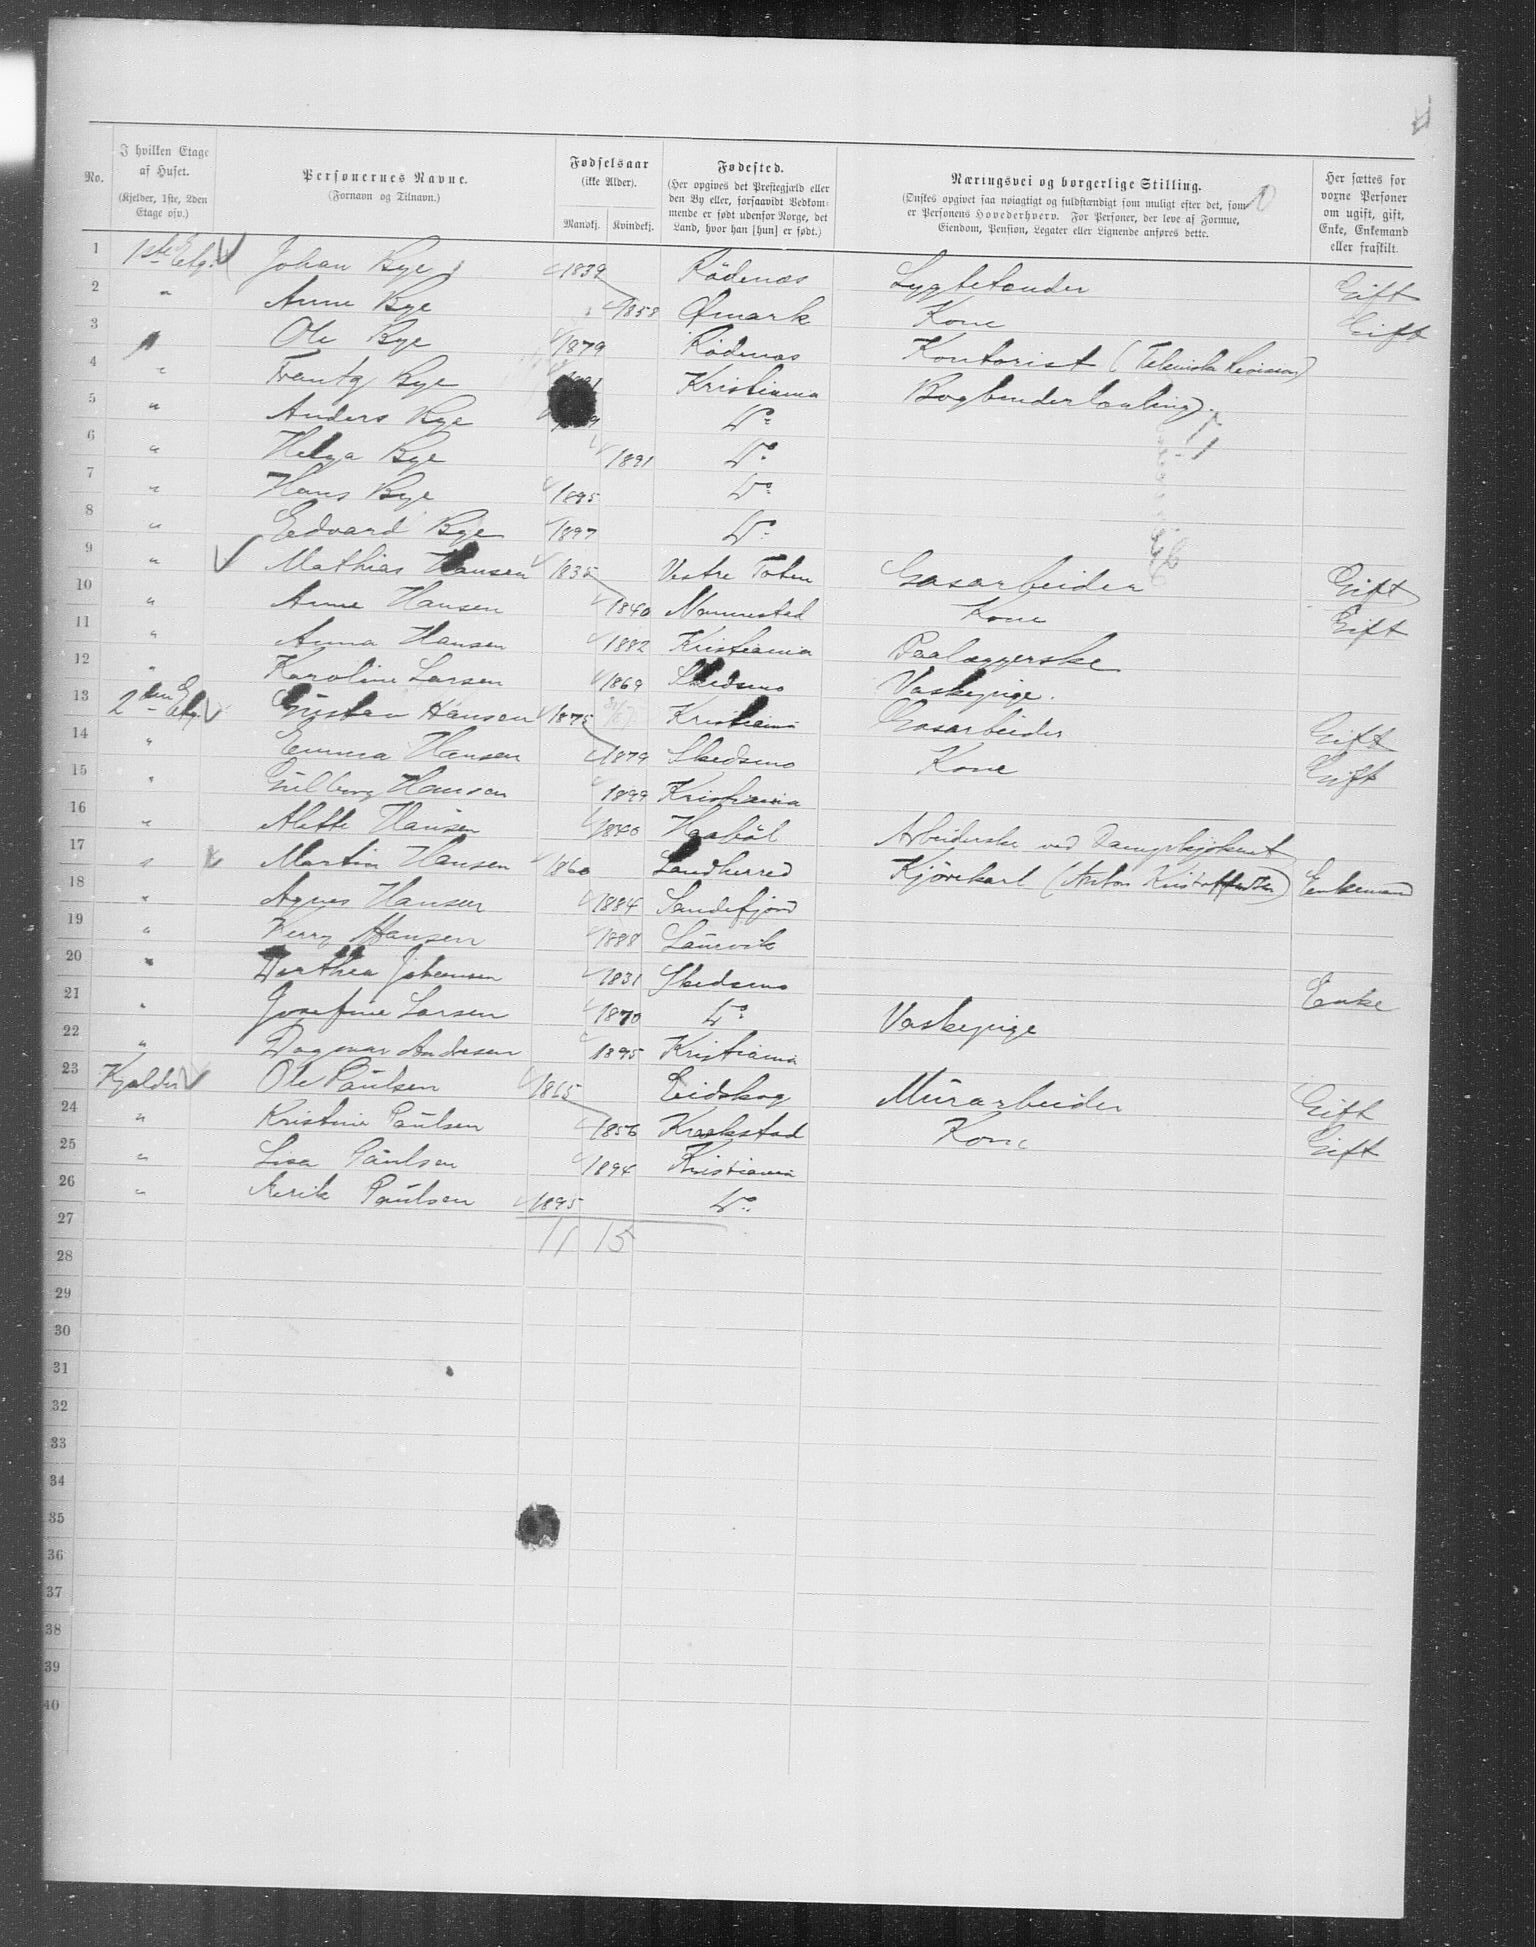 No.
I hvilken Etage af Huset.
(Kjelder, 1ste, 2den Etage osv.)
Personernes Navne.
(Fornavn og Tilnavn.)
Fødselsaar
(ikke Alder).
Mandkj. Kvindekj.
Fødested.
(Her opgives det Prestegjæld eller den By eller, forsaavidt Vedkommende er født udenfor Norge, det Land, hvor han [hun] er født.)
Næringsvei og borgerlige Stilling.
(Ønskes opgivet saa nøiagtigt og fuldstændigt som muligt efter det, som er Personens Hovederhverv. For Personer, der leve af Formue, Eiendom, Pension, Legater eller Lignende anføres dette.
Her sættes for voxne Personer om ugift, gift, Enke, Enkemand eller fraskilt.
1 1ste Etg. Johan Bye 1839 Rödenæs Lygtetænder Gift
2 " Anne Bye 1858 Ømark Kone Gift
3 " Ole Bye 1879 Rödenæs Kontorist
4 " Frantz Bye Kristiania Bogbinderlærling
5 " Anders Bye Do
6 " Helga Bye 1891 Do
7 " Hans Bye 1895 Do
8 " Edvard Bye 1897 Do
9 " Mathias Hansen 1835 Vestre Toten Gasarbeider Gift
10 " Anne Hansen 1840 Nannestad Kone Gift
11 " Anna Hansen 1882 Kristiania Paalæggerske
12 " Karoline Larsen 1869 Skedsmo Vaskepige.
13 2den Etg. Gustav Hansen 1875 Kristiania Gasarbeider Gift
14 " Emma Hansen 1879 Skedsmo Kone Gift
15 " Gulborg Hansen 1899 Kristiania
16 " Alette Hansen 1840 Haabøl Arbeiderske ved Dampkjøkenet
17 " Martin Hansen 1860 Sandherred Kjörekarl (Anton Kristoffersen) Enkemand
18 " Agnes Hansen 1884 Sandefjord
19 " Hansen 1888 Laurvik
20 " Dorthea Johansen 1831 Skedsmo Enke
21 " Josefine Larsen 1870 Do Vaskepige
22 " Dagmar Andresen 1895 Kristiania
23 Kjælder Ole Paulsen 1865 Eidskog Murarbeider Gift
24 " Kristine Paulsen 1856 Kraakstad Kone Gift
25 " Lisa Paulsen 1894 Kristiania
26 " Aerik Paulsen 1895 Do
27 11 15
28
29
30
31
32
33
34
35
36
37
38
39
40